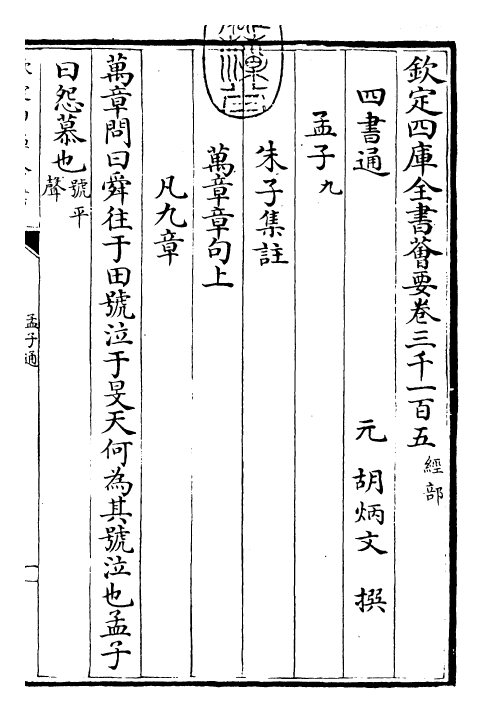 欽定四庫全書薈要卷三千一百五 經部
四書通 元 胡炳文 撰
孟子九
朱子集註
萬章章句上
凡九章
萬章問曰舜往于田號泣于旻天何為其號泣也孟子
曰怨慕也號平聲
孟子通
一